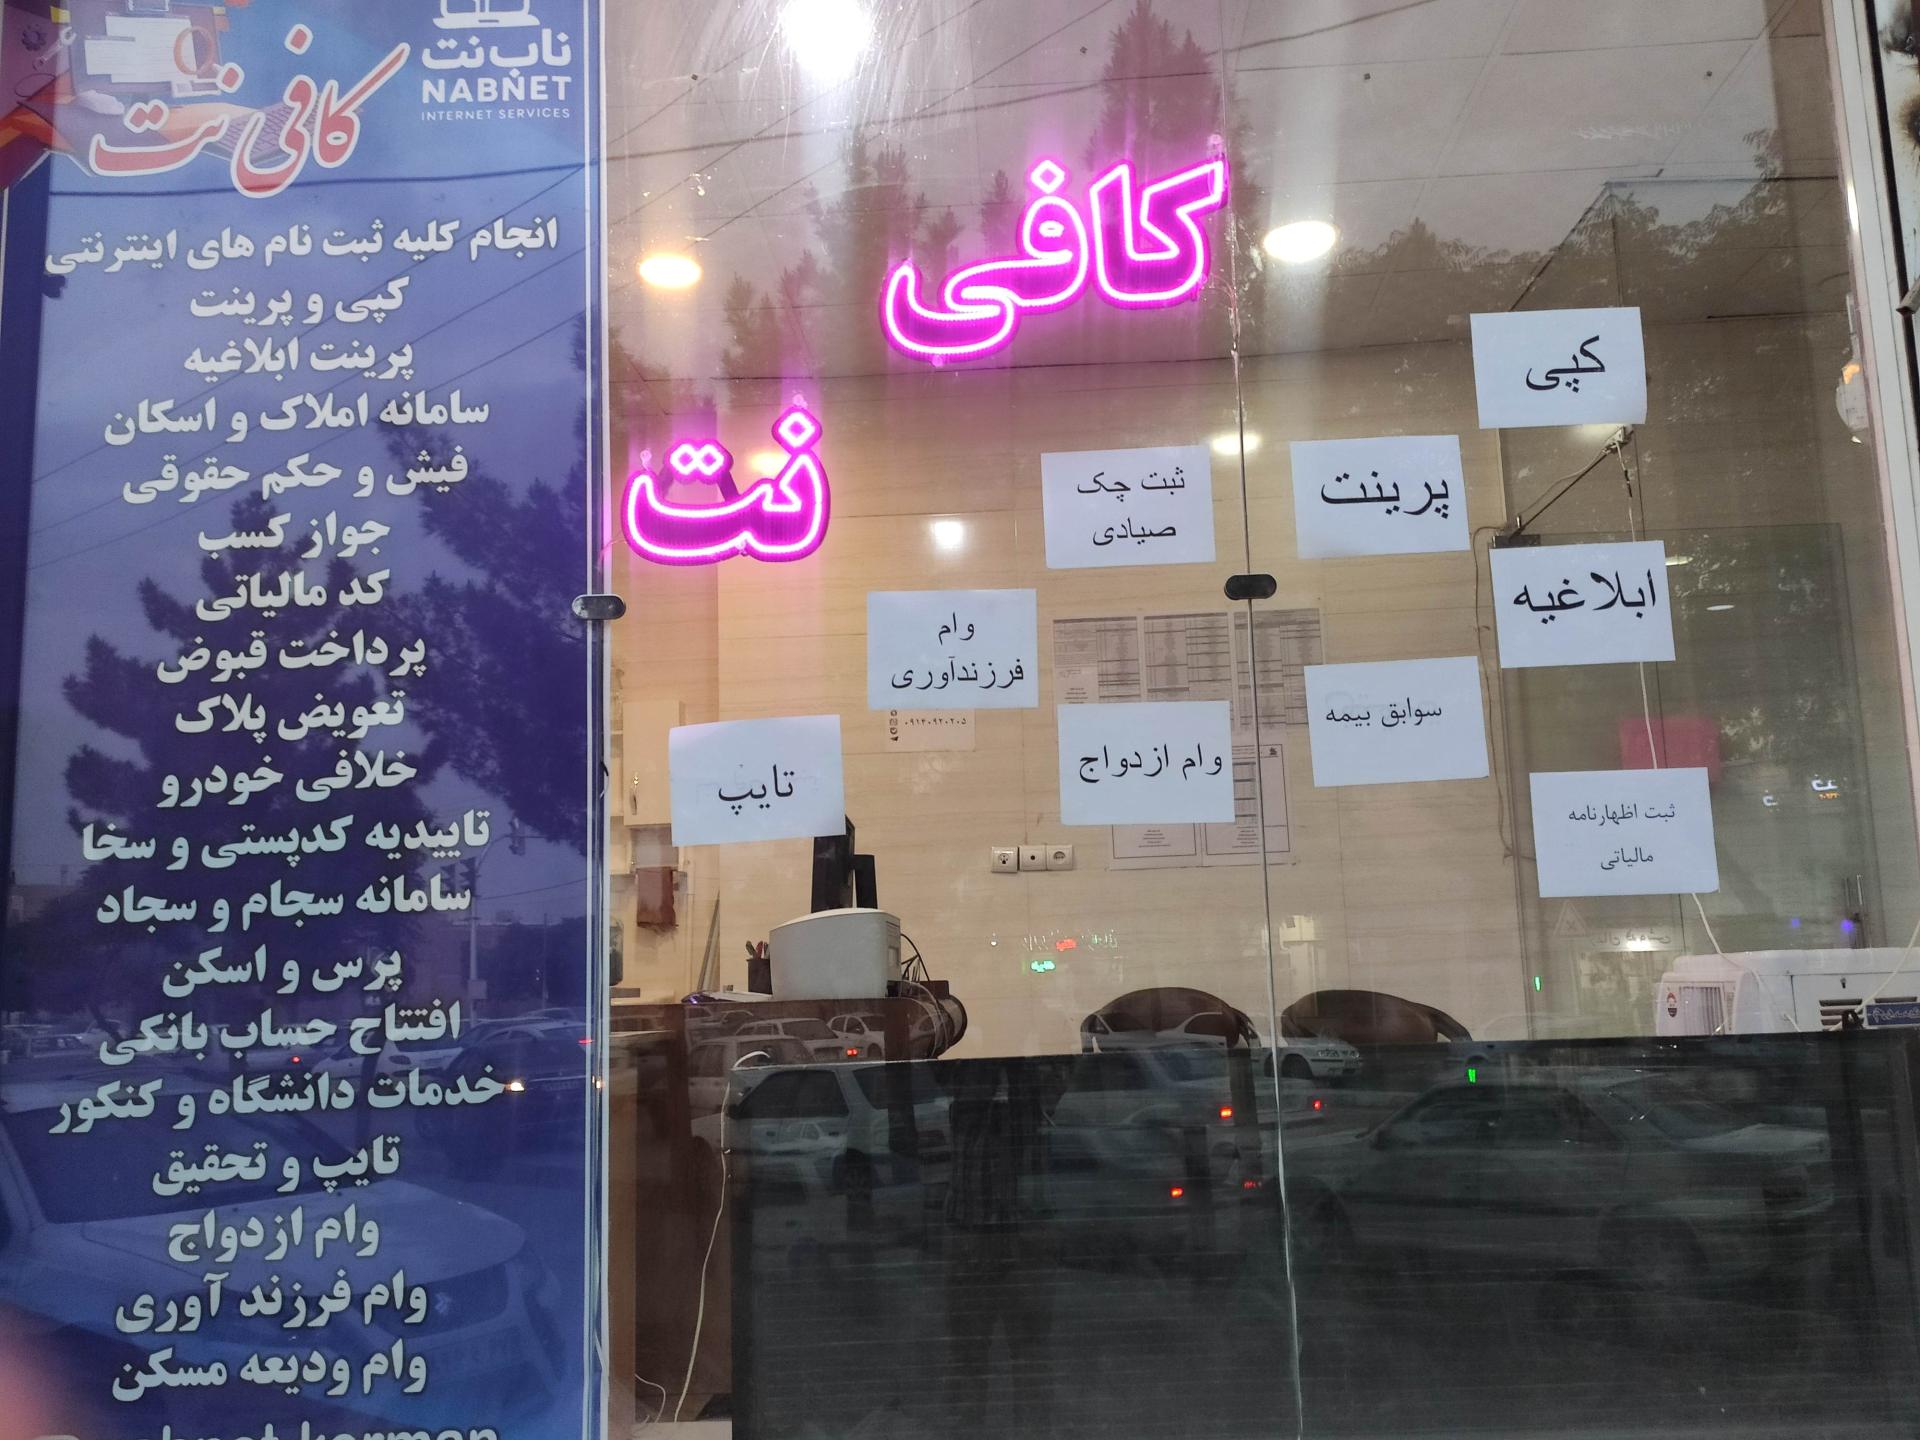 ناب نت
NABNET
INTERNET SERVICES
کافی نت
انجام کلیه ثبت نام های اینترنتی
کپی و پرینت
پرینت ابلاغیه
سامانه املاک و اسکان
فیش و حکم حقوقی
جواز کسب
کد مالیاتی
پرداخت قبوض
تعویض پلاک
خلافی خودرو
تاییدیه کدپستی و سخا
سامانه سجام و سجاد
پرس و اسکن
افتتاح حساب بانکی
خدمات دانشگاه و کنکور
تایپ و تحقیق
وام ازدواج
وام فرزند آوری
وام ودیعه مسکن
کافی
نت
کپی
پرینت
ثبت چک
صیادی
ابلاغیه
وام
فرزندآوری
سوابق بیمه
وام ازدواج
تایپ
ثبت اظهارنامه
مالیاتی
۰۹۱۳۰۹۲۰۲۰۵